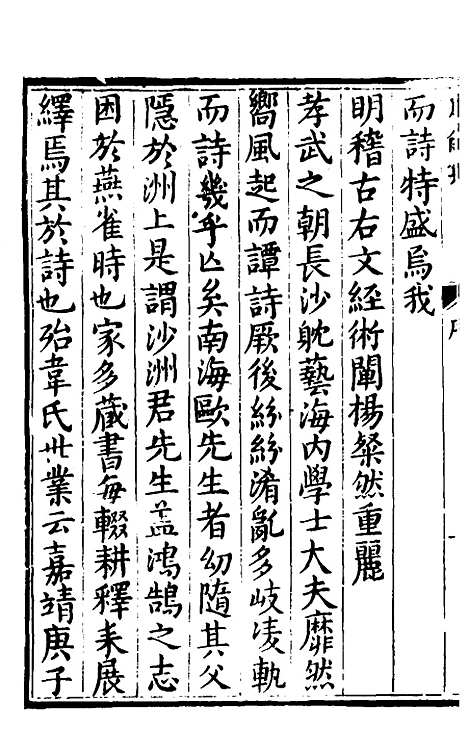 而詩特盛焉我
明稽古右文經術闡楊粲然重麗
孝武之朝長沙躭藝海內學士大夫靡然
嚮風起而譚詩厥後紛紛淆亂多岐凌軌
而詩幾乎亾矣南海歐先生者幼隨其父
隱於洲上是謂沙洲君先生盖鴻鵠之志
困於燕雀時也家多蔵書每輟耕釋耒展
繹焉其於詩也殆韋氏丗業云嘉靖庚子
序